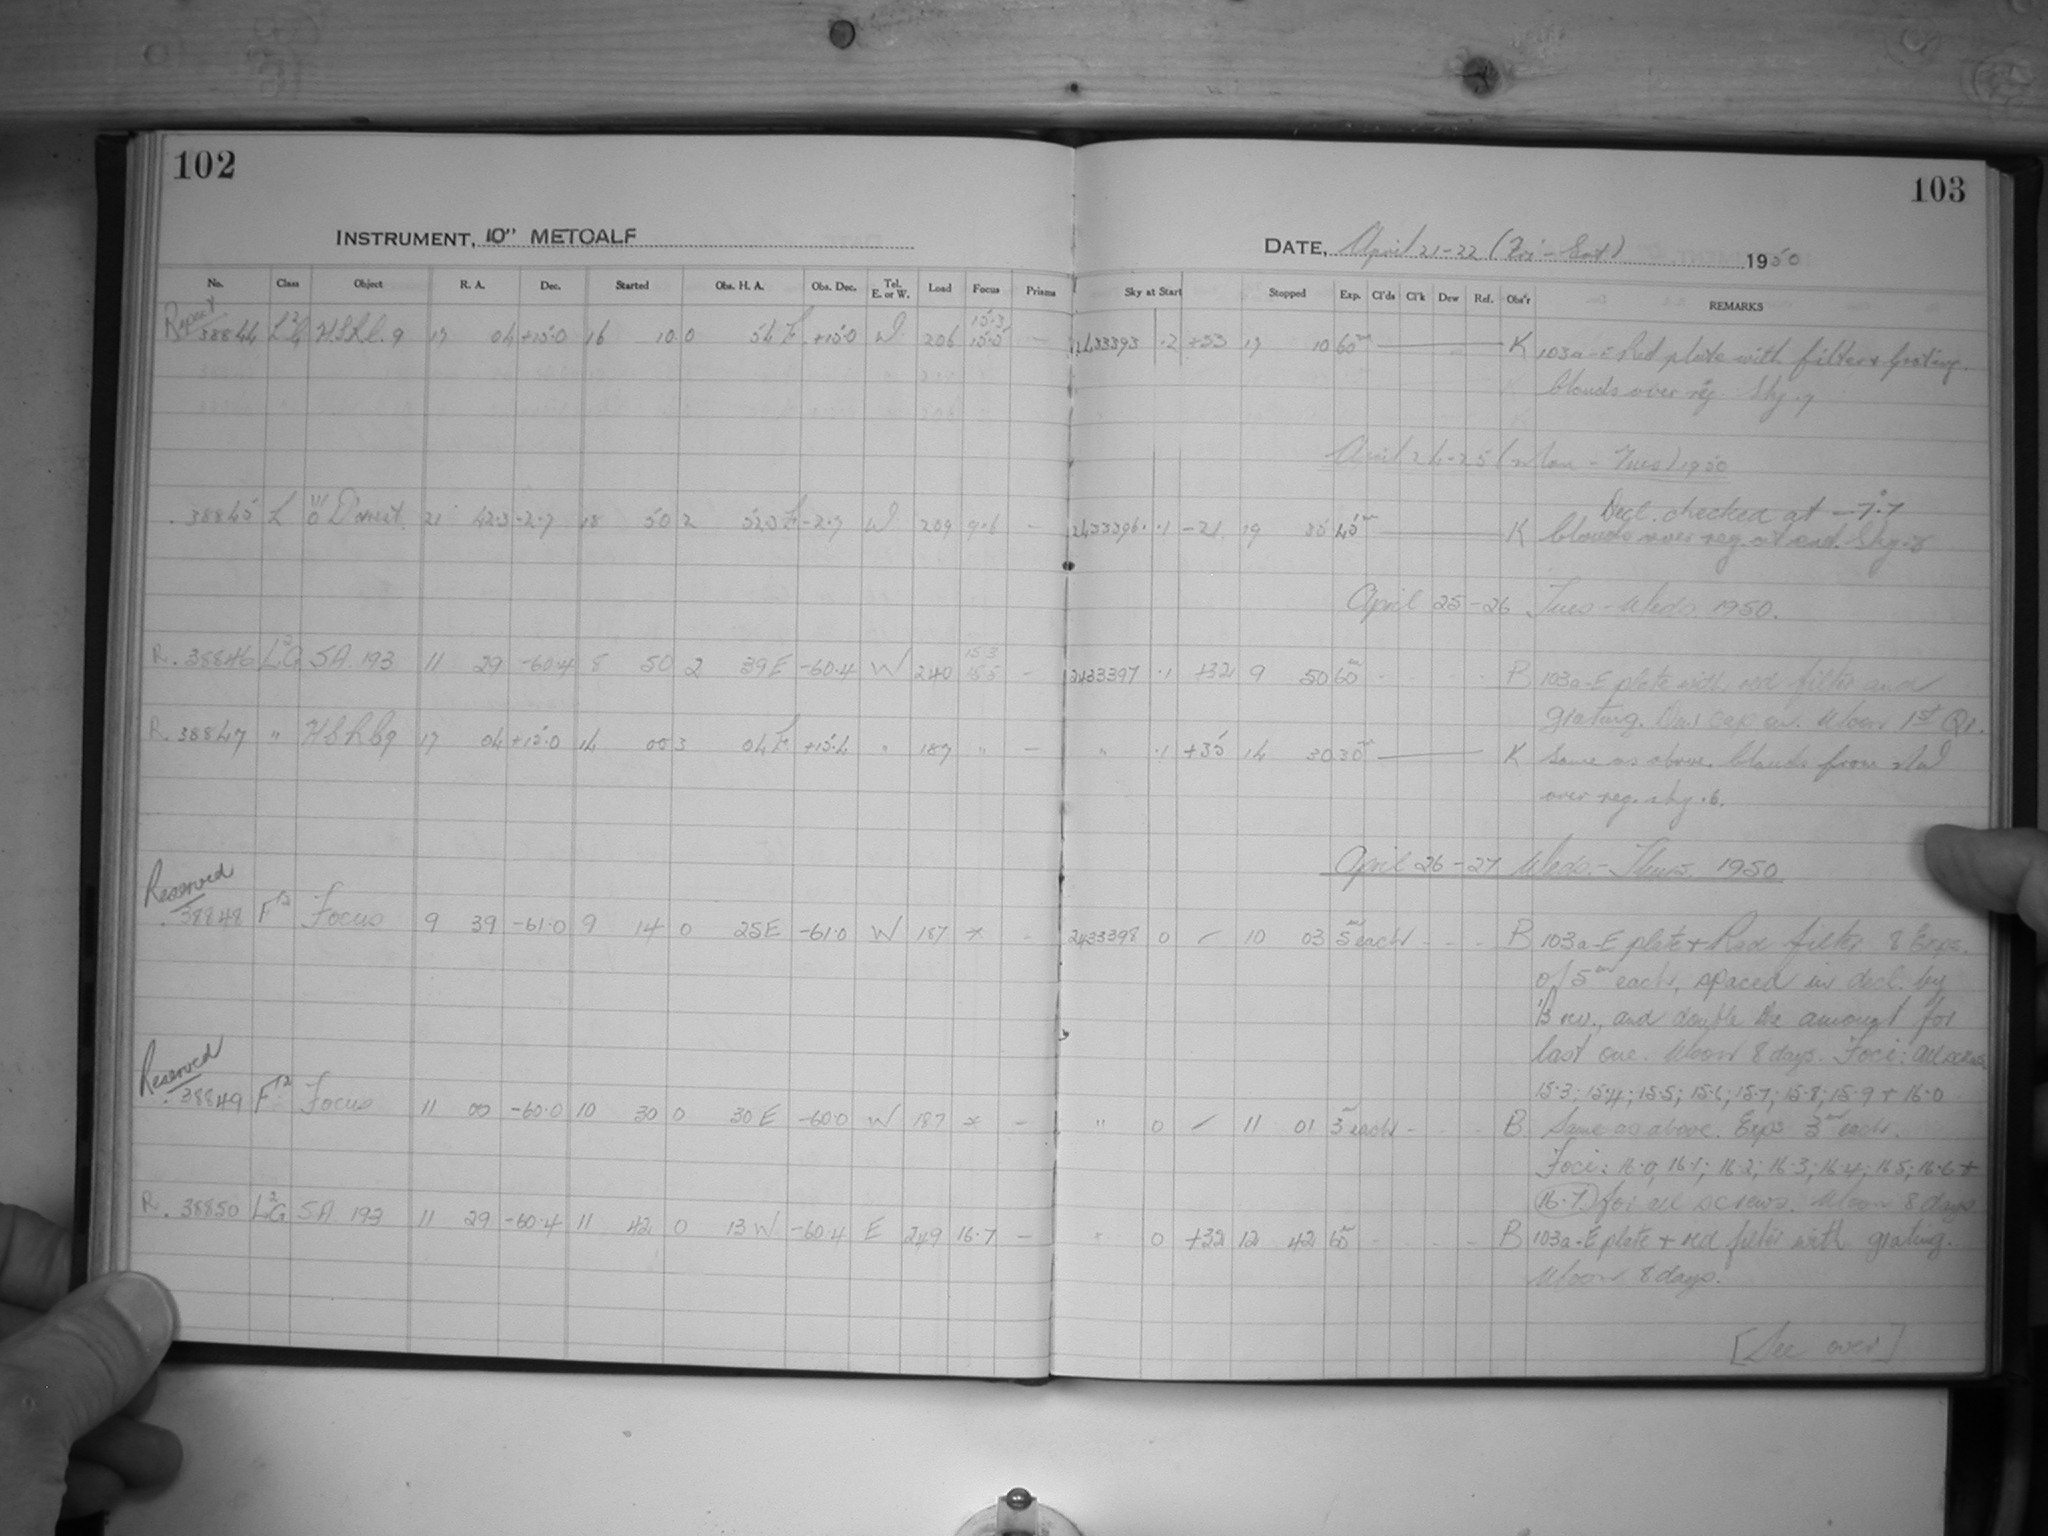 102
103
INSTRUMENT, 10" METCALF
DATE, April 21-22 (Fri - Sat) 1950
No. Class Object R. A. Dec. Started Obs. H. A. Obs. Dec. Tel. E. or W. Load Focus Prisms Sky at Start Stopped Exp. Cl'ds Cl'k Dew Ref. Obs'r REMARKS
38844 17 04 +15.0 16 10 0 54 E +15.0 W 206 15.3 15.5 - 2433393 .2 +33 17 10 60m K 103a-E Red plate with filter & Grating.
Clouds over reg. Sky .9
April 24-25 (Mon - Tues) 1950
Decl. checked at -7.7
38845 L 21 42.3 -2.7 18 50 2 52.3 E -2.7 W 209 9.6 - 2433396 .1 -21 19 35 45m K Clouds over reg. at end. Sky .8
April 25-26 Tues - Weds. 1950.
R. 38846 L2G S.A. 193 11 29 -60.4 8 50 2 39 E -60.4 W 240 15.3 15.5 - 2433397 .1 +32 9 50 60m B 103a-E plate with red filter and
grating. Dew cap on. Moon 1st Qr.
R. 38847 " 17 04 +15.0 14 00 3 04 E +15.4 " 187 " - " .1 +35 14 30 30m K Same as above. Clouds from
over reg. sky .6.
April 26-27 Weds. - Thurs. 1950
Reserved
38848 F12 Focus 9 39 -61.0 9 14 0 25 E -61.0 W 187 * - 2433398 0 10 03 5m each B 103a-E plate + Red filter 8 Exps.
of 5m each, spaced in decl. by
rev., and double the amount for
last one. Moon 8 days. Foci: all screws
15.3; 15.4; 15.5; 15.6; 15.7; 15.8; 15.9 + 16.0
Reserved
38849 F12 Focus 11 00 -60.0 10 30 0 30 E -60.0 W 187 * - " 0 11 01 3m each B. Same as above. Exps 3m each.
Foci: 16.0; 16.1; 16.2; 16.3; 16.4; 16.5; 16.6 +
(16.7) for all screws. Moon 8 days
R. 38850 L2G S.A. 193 11 29 -60.4 11 42 0 13 W -60.4 E 249 16.7 - " 0 +32 12 42 60m B 103a-E plate + red filter with grating.
Moon 8 days.
[See over]